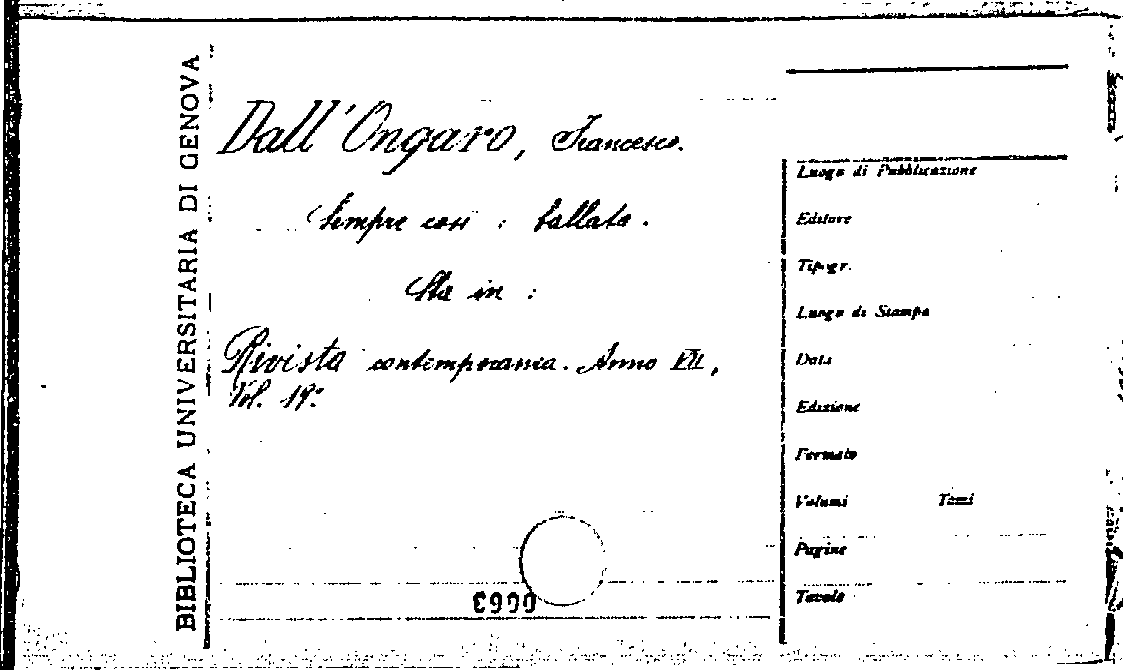 BIBLIOTECA UNIVERSITARIA DI GENOVA
Dall'Ongaro, Francesco.
Sempre così : ballata.
Sta in :
Rivista contemporanea. Anno VII,
Vol. 19º
Luogo di Pubblicazione
Editore
Tipogr.
Luogo di Stampa
Data
Edizione
Formato
Volumi Tomi
Pagine
Tavole